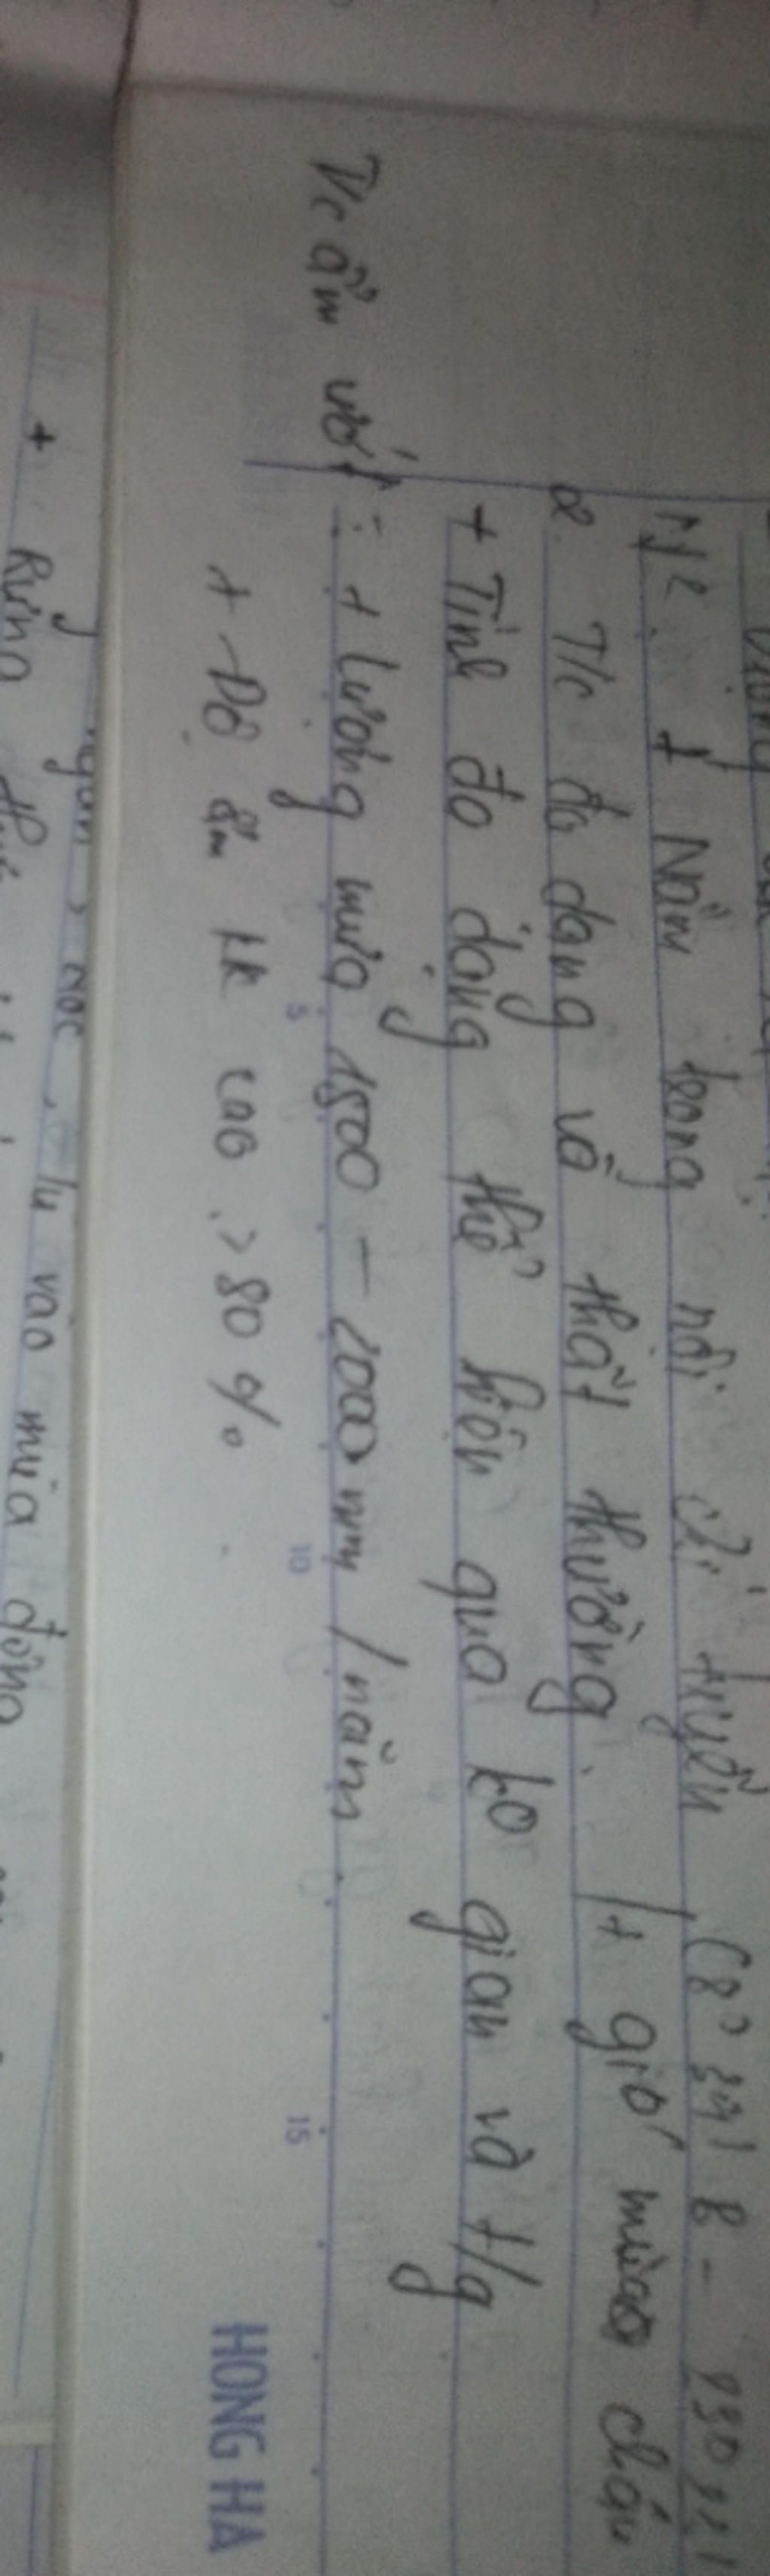 NN: + Nằm trong nội chí tuyến (8°34' B - 23°23'
2. T/c đa dạng và thất thường. + gió mùa châu
+ Tính đa dạng thể hiện qua ko gian và t/g
T/c ẩm ướt: + Lượng mưa 1500 - 2000 mm /năm.
+ Độ ẩm kk cao > 80 %.
HONG HA
5 10 15
vào mùa đông
+ Rừng